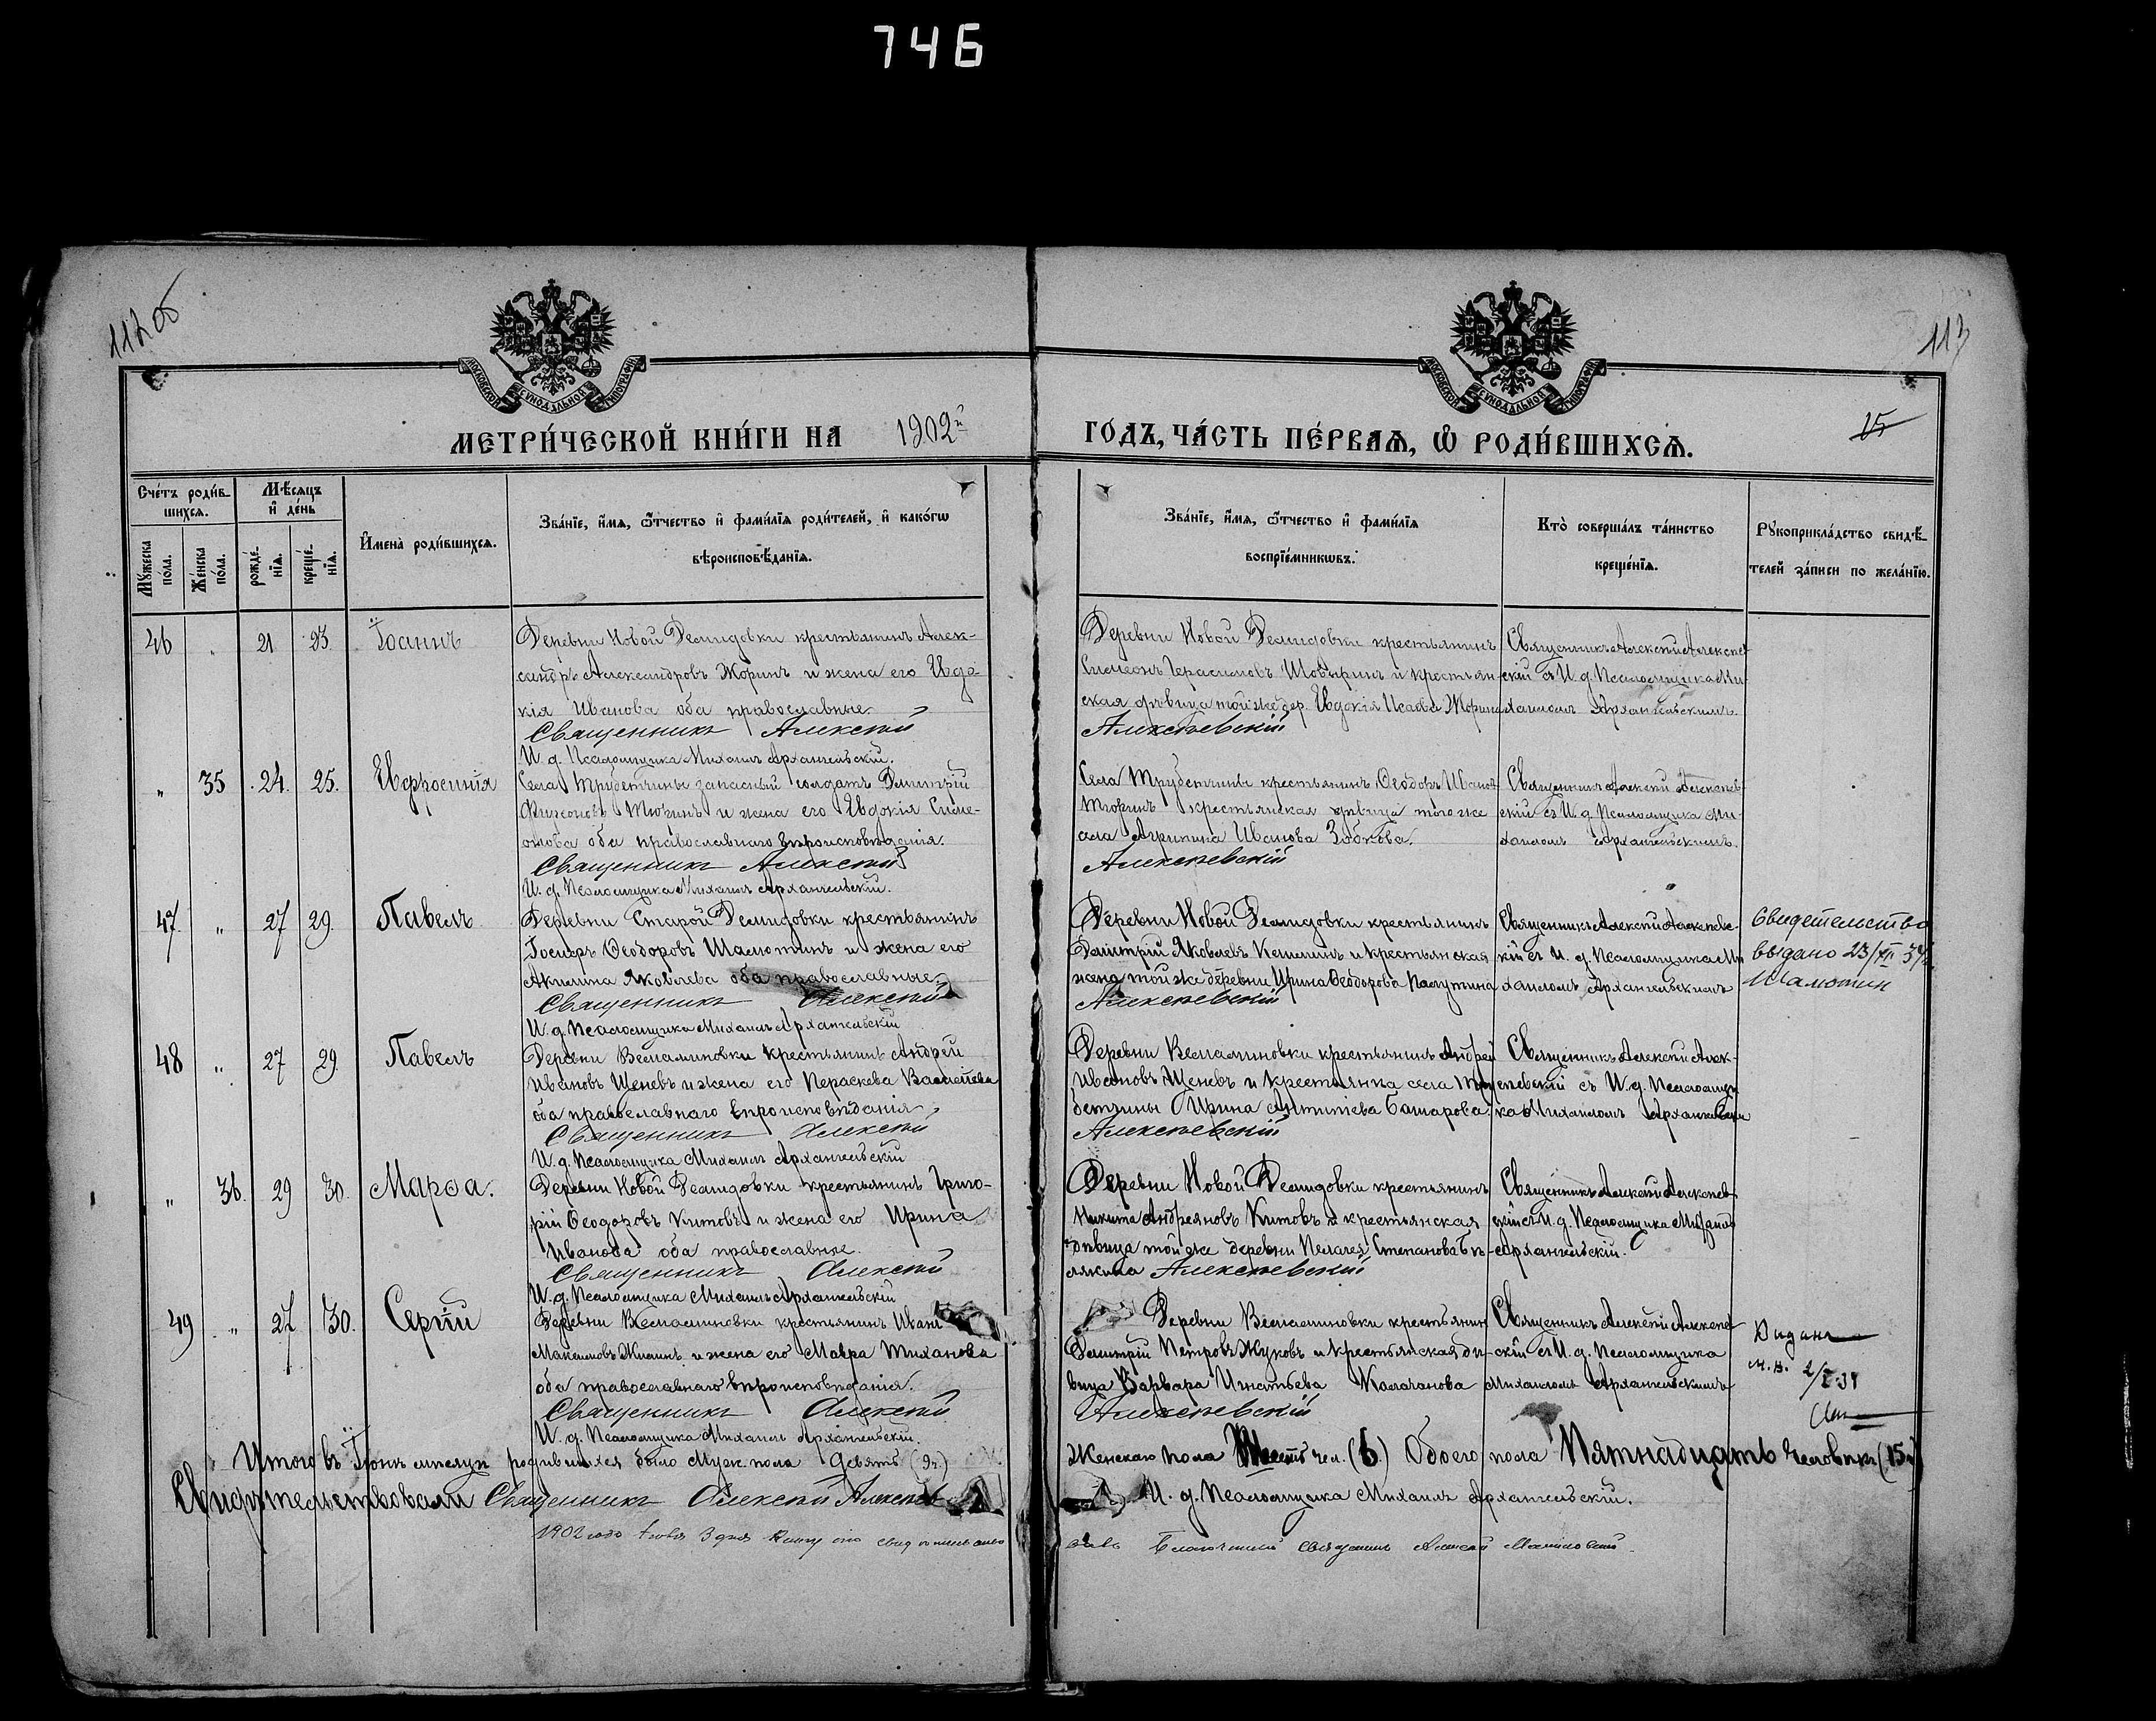 746
112 об
113
15
МОСКОВСКОЙ СѴНОДАЛЬНОЙ ТИПОГРАФІИ
МОСКОВСКОЙ СѴНОДАЛЬНОЙ ТИПОГРАФІИ
МЕТРИ́ЧЕСКОЙ КНИ́ГИ НА 1902й ГО́ДЪ, ЧА́СТЬ ПЕ́РВАѦ, Ѡ҆ РОДИ́ВШИХСѦ.
Сче́тъ роди́вшихсѧ.
Мꙋ́жеска по́ла.
Же́нска по́ла.
Мѣ́сѧцъ и҆ де́нь
рожде́нїѧ.
креще́нїѧ.
И҆мена̀ роди́вшихсѧ.
Зва́нїе, и҆́мѧ, ѻ҆́тчество и҆ фами́лїѧ роди́телей, и҆ како́гѡ
вѣроисповѣ́данїѧ.
Зва́нїе, и҆́мѧ, ѻ҆́тчество и҆ фами́лїѧ
воспрїе́мникѡвъ.
Кто̀ соверша́лъ та́инство
креще́нїѧ.
Рꙋкоприкла́дство свидѣ́-
телей за́писи по жела́нїю.
46 " 21 23 Іоаннъ
Деревни Новой Демидовки крестьянинъ Алек-
сандръ Александровъ Жоринъ и жена его Евдо-
кія Иванова оба православные.
Священникъ Алексѣй Алексѣевскій
И. д. Псаломщика Михаилъ Архангельскій.
Деревни Новой Демидовки крестьянинъ
Симеонъ Герасимовъ и крестьян-
ская дѣвица той же дер. Евдокія Исаева Жорина
Священникъ Алексѣй Алексѣев-
скій съ И. д. Псаломщика Ми-
хаиломъ Архангельскимъ.
" 35 24 25. Евфросинія
Села Трубетчины запасный солдатъ Димитрій
Тюринъ и жена его Евдокія Симе-
онова оба православнаго вѣроисповѣданія.
Священникъ Алексѣй Алексѣевскій
И. д. Псаломщика Михаилъ Архангельскій.
Села Трубетчины крестьянинъ Ѳеодоръ Ивановъ
Тюринъ крестьянская дѣвица того же
села Агрипина Иванова Зобкова.
Священникъ Алексѣй Алексѣев-
скій съ И. д. Псаломщика Ми-
хаиломъ Архангельскимъ.
47. " 27 29. Павелъ
Деревни Старой Демидовки крестьянинъ
Іосифъ Ѳеодоровъ Шамотинъ и жена его
Акилина Яковлева оба православные.
Священникъ Алексѣй Алексѣевскій
И. д. Псаломщика Михаилъ Архангельскій
Деревни Новой Демидовки крестьянинъ
Димитрій Яковлевъ и крестьянская
жена той же деревни Ирина Ѳеодорова
Священникъ Алексѣй Алексѣевс-
кій съ И. д. Псаломщика Ми
хаиломъ Архангельскимъ
Свидетельство
выдано 23/VII 37
Шамотин
48 " 27 29. Павелъ
Деревни Вельяминовки крестьянинъ Андрей
Ивановъ Щеневъ и жена его Параскева Васильева
оба православнаго вѣроисповѣданія
Священникъ Алексѣй Алексѣевскій
И. д. Псаломщика Михаилъ Архангельскій
Деревни Вельяминовки крестьянинъ Андрей
Ивановъ Щеневъ и крестьянка села Тру
бетчины Ирина Антипіева Башарова.
Священникъ Алексѣй Алек-
сѣевскій съ И. д. Псаломщи
ка Михаиломъ Архангельскимъ
" 36. 29 30. Марѳа.
Деревни Новой Демидовки крестьянинъ Григо-
рій Ѳеодоровъ Китовъ и жена его Ирина
Иванова оба православные.
Священникъ Алексѣй Алексѣевскій
И. д. Псаломщика Михаилъ Архангельскій
Деревни Новой Демидовки крестьянинъ
Никита Андреяновъ Китовъ и крестьянская
дѣвица той же деревни Пелагея Степанова Бѣ-
лякина
Священникъ Алексѣй Алексѣев-
скій съ И. д. Псаломщика Михаилъ
Архангельскій.
49 " 27 30. Сергій
Деревни Вельяминовки крестьянинъ Иванъ
Максимовъ Жилинъ и жена его Мавра Тиханова
оба православнаго вѣроисповѣданія.
Священникъ Алексѣй Алексѣевскій
И. д. Псаломщика Михаилъ Архангельскій.
Деревни Вельяминовки крестьянин
Димитрій Петровъ Жуковъ и крестьянская дѣ-
вица Варвара Игнатьева Колочанова
Священникъ Алексѣй Алексѣев
скій съ И. д. Псаломщика
Михаиломъ Архангельскимъ
Выдана
Итого въ Іюнѣ мѣсяцѣ родившихся было Муж. пола девять (9 ч.) Женскаго пола Шесть чел. (6.) Обоего пола Пятнадцать человѣкъ (15)
Свидѣтельствовали Священникъ Алексѣй Алексѣев И. д. Псаломщика Михаилъ Архангельскій.
1902 года 3 дня Книгу сію свидѣтельствовалъ Благочинный Священникъ Алексѣй